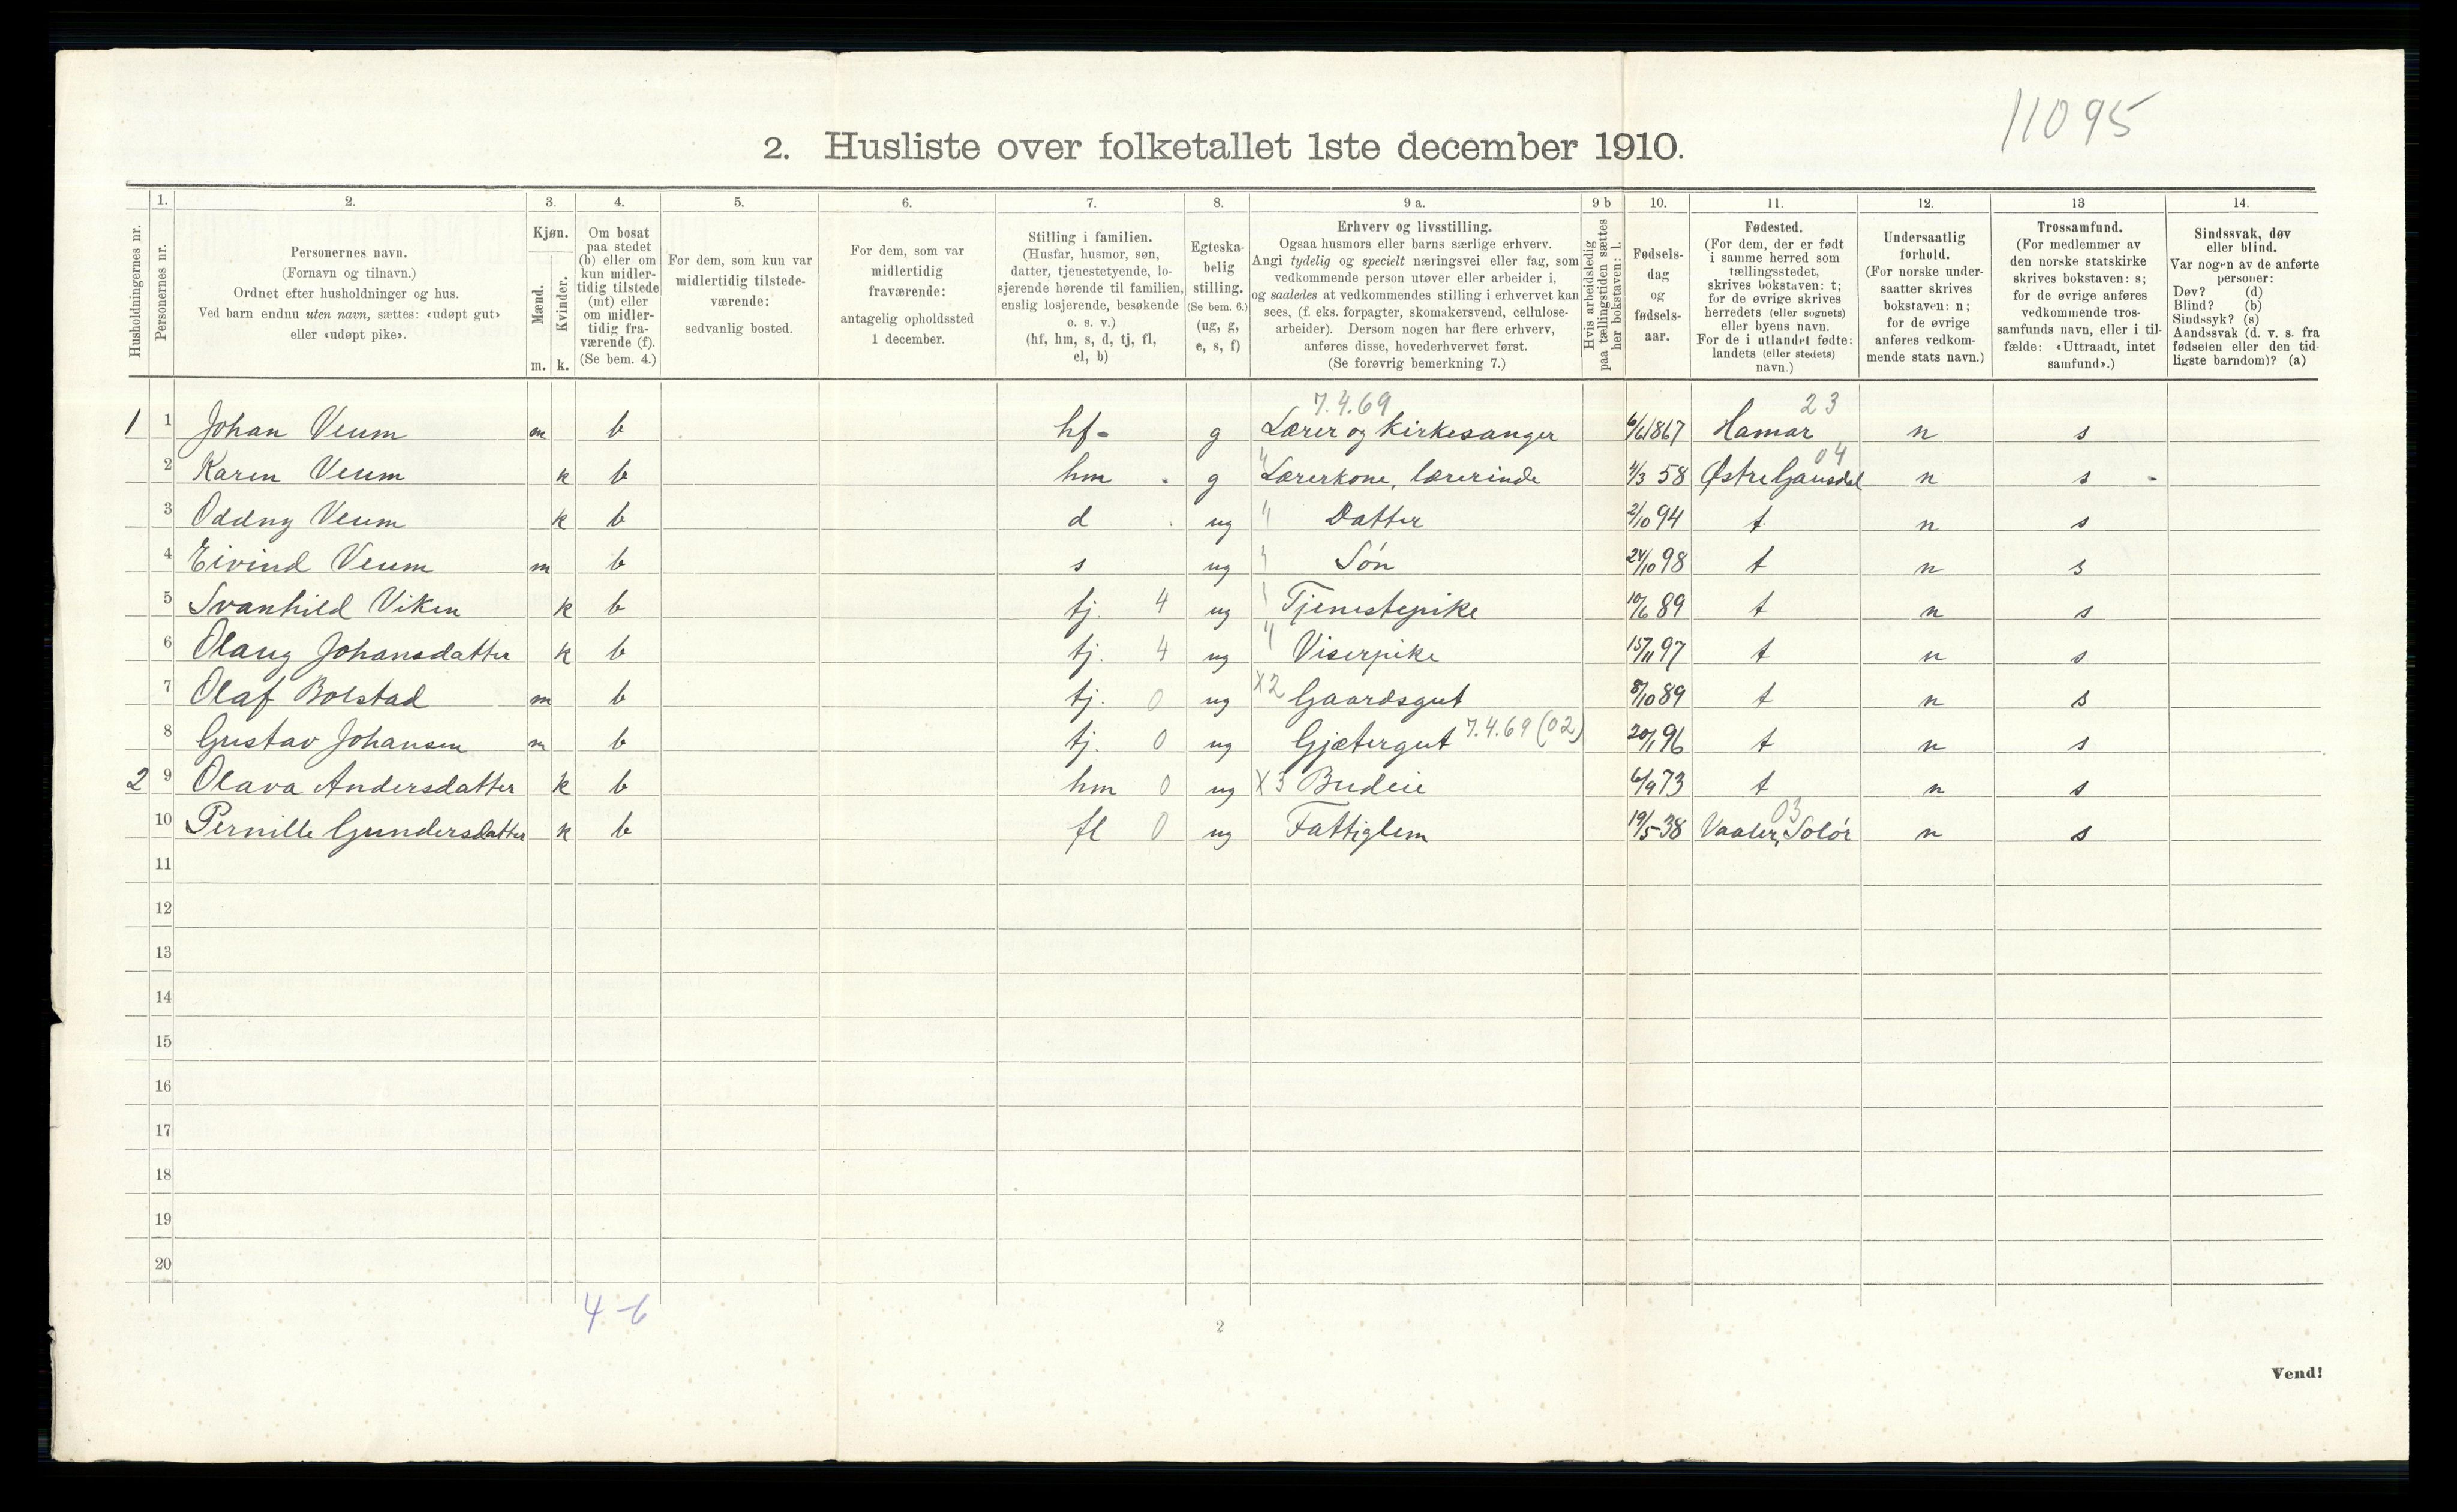 11095
2. Husliste over folketallet 1ste december 1910.
1. 2. 3. 4. 5. 6. 7. 8. 9 a. 9 b 10. 11. 12. 13 14.
Husholdningernes nr.
Personernes nr.
Personernes navn.
(Fornavn og tilnavn.)
Ordnet efter husholdninger og hus.
Ved barn endnu uten navn, sættes: «udøpt gut»
eller «udøpt pike».
Kjøn.
Mænd.
Kvinder.
m. k.
Om bosat
paa stedet
(b) eller om
kun midler-
tidig tilstede
(mt) eller
om midler-
tidig fra-
værende (f).
(Se bem. 4.)
For dem, som kun var
midlertidig tilstede-
værende:
sedvanlig bosted.
For dem, som var
midlertidig
fraværende:
antagelig opholdssted
1 december.
Stilling i familien.
(Husfar, husmor, søn,
datter, tjenestetyende, lo-
sjerende hørende til familien,
enslig losjerende, besøkende
o. s. v.)
(hf, hm, s, d, tj, fl,
el, b)
Egteska-
belig
stilling.
(Se bem. 6.)
(ug, g,
e, s, f)
Erhverv og livsstilling.
Ogsaa husmors eller barns særlige erhverv.
Angi tydelig og specielt næringsvei eller fag, som
vedkommende person utøver eller arbeider i,
og saaledes at vedkommendes stilling i erhvervet kan
sees, (f. eks. forpagter, skomakersvend, cellulose-
arbeider). Dersom nogen har flere erhverv,
anføres disse, hovederhvervet først.
(Se forøvrig bemerkning 7.)
Hvis arbeidsledig
paa tællingstiden sættes
her bokstaven: l.
Fødsels-
dag
og
fødsels-
aar.
Fødested.
(For dem, der er født
i samme herred som
tællingsstedet,
skrives bokstaven: t;
for de øvrige skrives
herredets (eller sognets)
eller byens navn.
For de i utlandet fødte:
landets (eller stedets)
navn.)
Undersaatlig
forhold.
(For norske under-
saatter skrives
bokstaven: n;
for de øvrige
anføres vedkom-
mende stats navn.)
Trossamfund.
(For medlemmer av
den norske statskirke
skrives bokstaven: s;
for de øvrige anføres
vedkommende tros-
samfunds navn, eller i til-
fælde: «Uttraadt, intet
samfund».)
Sindssvak, døv
eller blind.
Var nogen av de anførte
personer:
Døv? (d)
Blind? (b)
Sindssyk? (s)
Aandssvak (d. v. s. fra
fødselen eller den tid-
ligste barndom)? (a)
7.4.69 23
1 1 Johan Veum m b hf- g Lærer og kirkesanger 6/6 1867 Hamar n s
04
2 Karen Veum k b hm g " Lærerkone, lærerinde 4/3 58 Østre Gausdal n s
3 Oddny Veum k b d ug " Datter 2/10 94 t n s
4 Eivind Veum m b s ug " Søn 24/10 98 t n s
5 Svanhild Viken k b tj. 4 ug " Tjenestepike 10/6 89 t n s
6 Olaug Johansdatter k b tj. 4 ug " Viserpike 15/11 97 t n s
7 Olaf Bolstad m b tj. 0 ug X2 Gaardsgut 8/10 89 t n s
8 Gustav Johansen m b tj. 0 ug Gjætergut 7.4.69 (02) 20/1 96 t n s
2 9 Olava Andersdatter k b hm 0 ug X3 Budeie 6/9 73 t n s
03
10 Pernille Gundersdatter k b fl 0 ug Fattiglem 19/5 38 Vaaler, Solør n s
11
12
13
14
15
16
17
18
19
20
4-6
2
Vend!